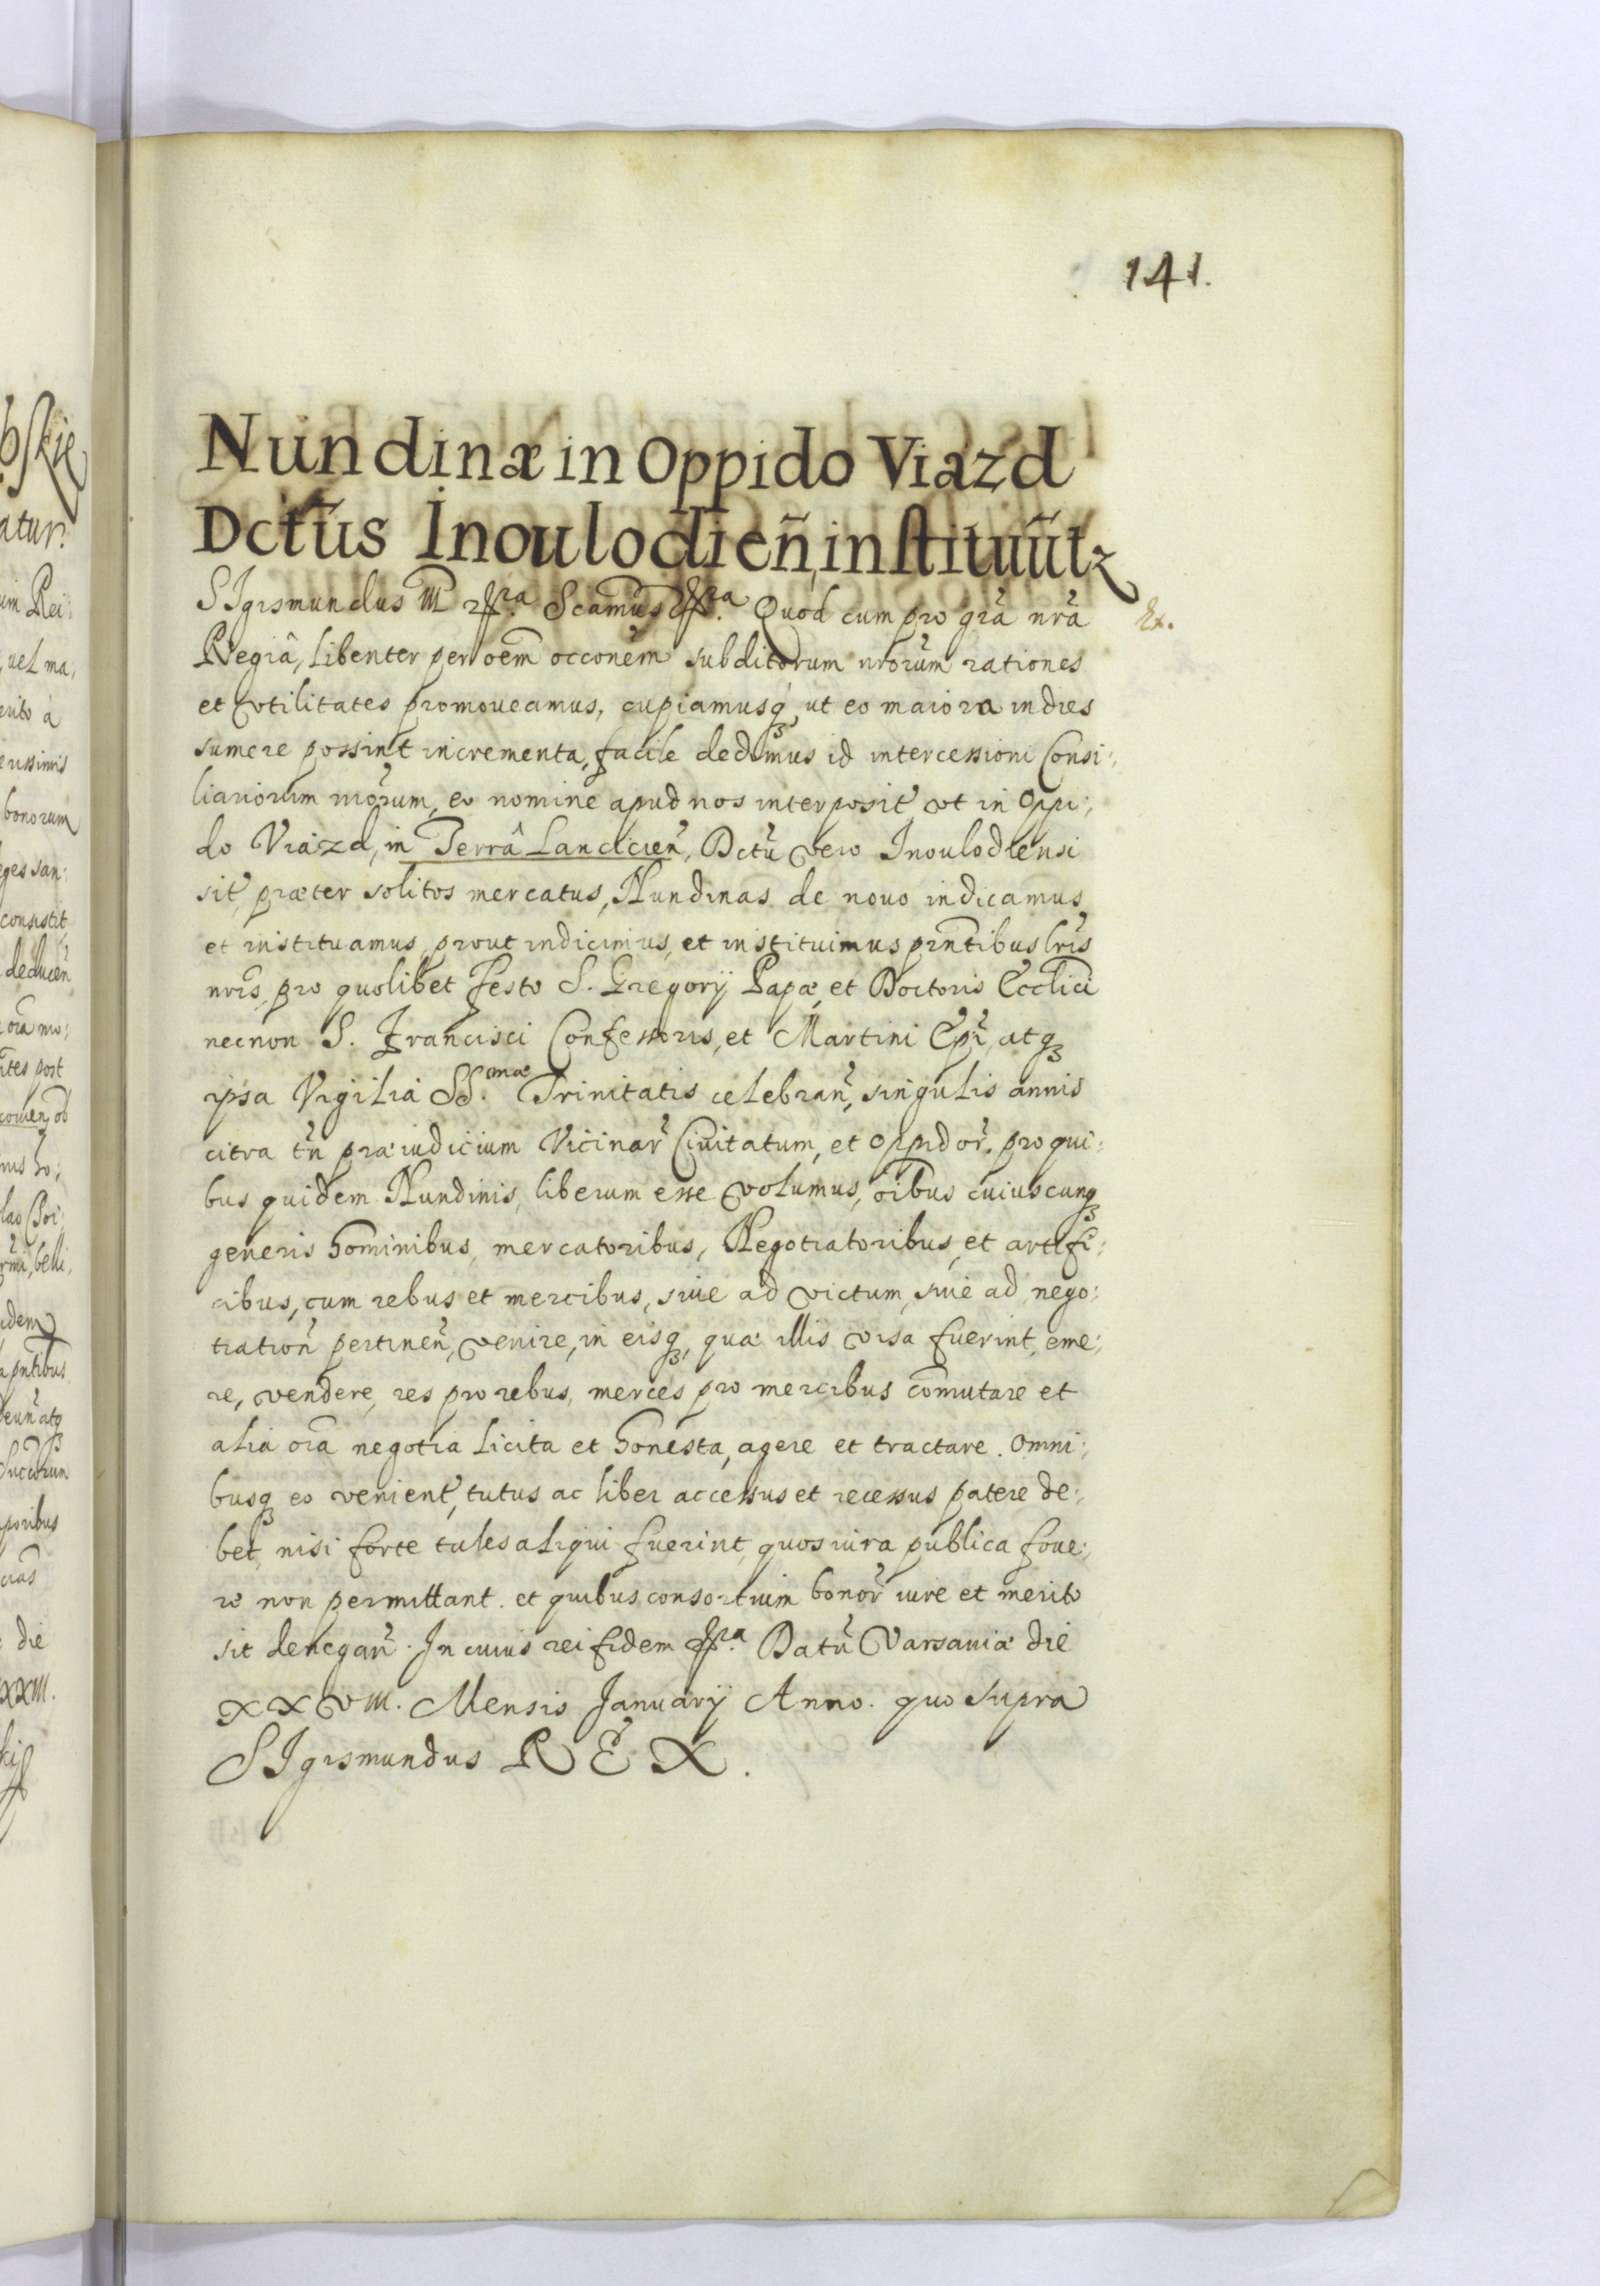 141.
Nundinæ in Oppido Viazd
Dctũs Inoulodień, instituũtr
SIgismundus III etc.ra Scamus etc.ra Quod cum pro grã nrã
Regiâ, libenter per oẽm occonẽm subditorum nrorum rationes
et vtilitates promoveamus, cupiamusq, ut eo maiora indies
sumere possint incrementa, facile dedimus id intercessioni Consi:
liariorum nrorum, eo nomine apud nos interposit, vt in Oppi:
do Viazd, in Terrâ Lancicień, Dctũ vero Inoulodiensi
sit, præter solitos mercatus, Nundinas de nouo indicamus
et instituamus, prout indicimus, et instituimus pñtibus lris
nris, pro quolibet festo S. Gregorij Papæ, et Doctoris Ecclici
necnon S. Francisci Confessoris, et Martini Epi, atq
ipsa Vigilia SS.mæ Trinitatis celebrań, singulis annis
citra tñ præiudicium Vicinar Ciuitatum, et Oppidor. pro qui:
bus quidem Nundinis, liberum esse volumus, oibus cuiuscunq
generis hominibus, mercatoribus, Negotiatoribus, et artifi:
cibus, cum rebus et mercibus, siue ad victum, siue ad nego:
tiation pertineń, venire, in eisq, quæ illis visa fuerint, eme:
re, vendere, res pro rebus, merces pro mercibus cõmutare et
alia oĩa negotia licita et honesta, agere et tractare. Omni:
busq eo venient, tutus ac liber accessus et recessus patere de:
bet, nisi forte tales aliqui fuerint, quos iura publica foue:
re non permittant. et quibus consortium bonor iure et merito
sit denegań. In cuius rei fidem etc.ra Datũ Varsauiæ die
XXVIII. Mensis Januarij Anno. quo supra
SIgismundus REX.